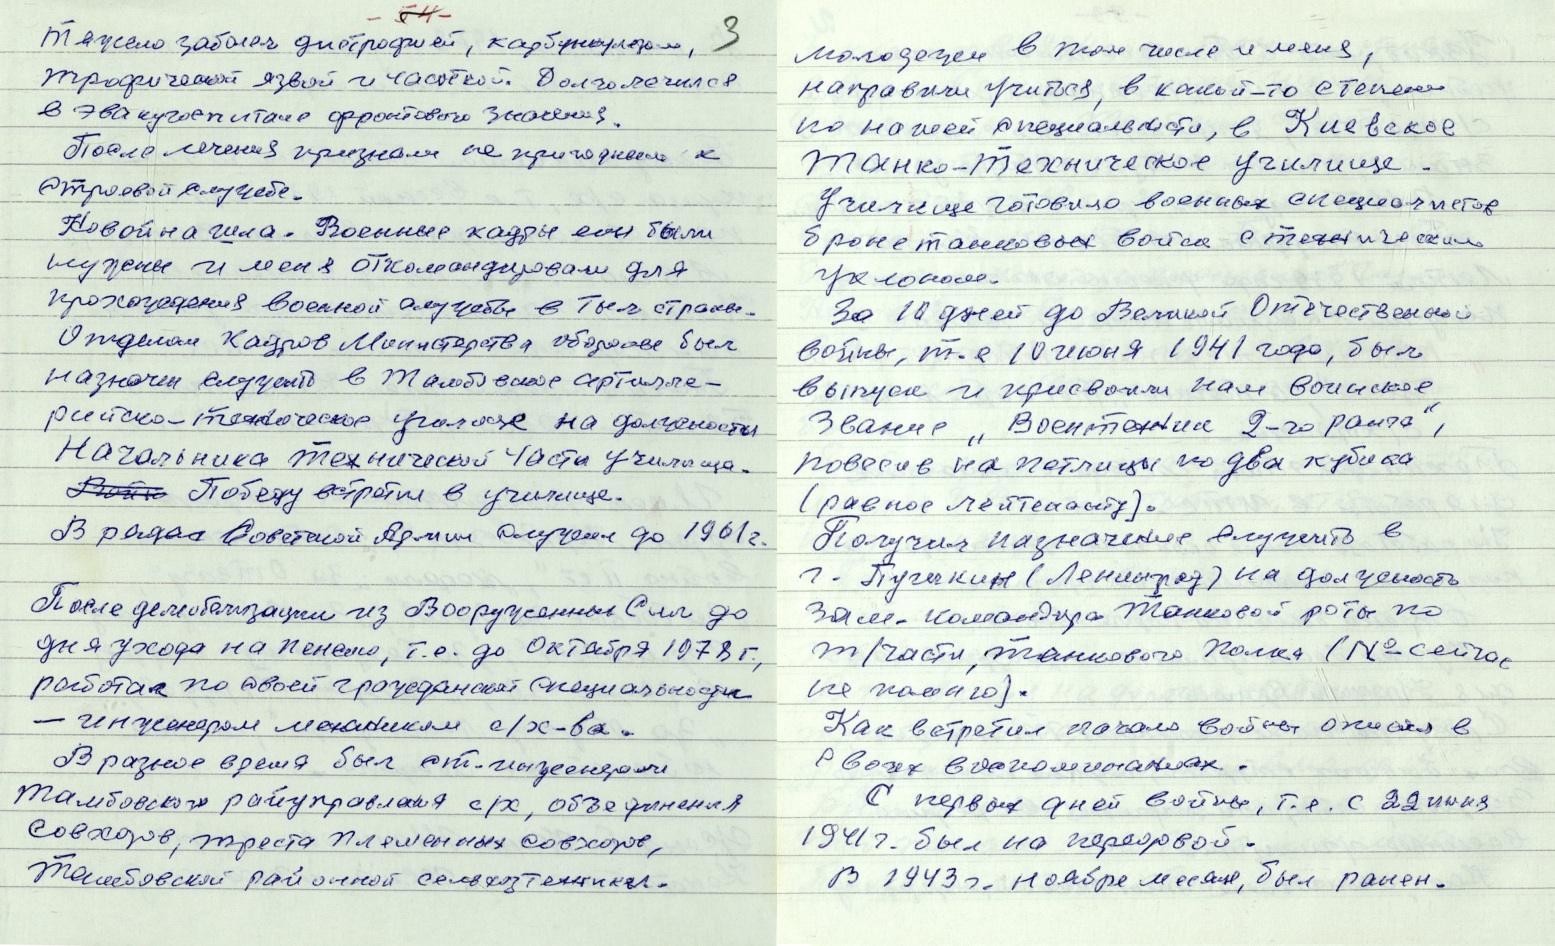 - 54 -
3
Тяжело заболел дистрофией, карбункулезом,
трофической язвой и чесоткой. Долго лечился
в эвакугоспитале фронтового значения.
После лечения признали не пригодным к
строевой службе.
Но война шла. Военные кадры ей были
нужены и меня откомандировали для
прохождения военной службы в тыл страны.
Отделом кадров Министерства обороны был
назначен служить в Тамбовское артилле-
рийско-техническое училище на должность
Начальника технической части училища.
Победу встретил в училище.
В рядах Советской Армии служил до 1961 г.
После демобилизации из Вооруженных Сил до
дня ухода на пенсию, т.е. до октября 1978 г.,
работал по своей гражданской специальности
— инженером механиком с/х-ва.
В разное время был ст. инженером
Тамбовского райуправления с/х, объединения
совхозов, треста племенных совхозов,
Тамбовской районной сельхозтехники.
молодежи в том числе и меня,
направили учиться, в какой-то степени
по нашей специальности, в Киевское
Танко-Техническое училище.
Училище готовило военных специалистов
бронетанковых войск с техническим
уклоном.
За 10 дней до Великой Отечественной
войны, т.е 10 июня 1941 года, был
выпуск и присвоили нам воинское
Звание „Воентехник 2-го ранга",
повесив на петлицы по два кубика
(равное лейтенанту).
Получил назначение служить в
г. Пушкин (Ленинград) на должность
зам. командира Танковой роты по
т/части, танкового полка (№ сейчас
не помню).
Как встретил начало войны описал в
своих воспоминаниях.
С первых дней войны, т.е. с 22 июня
1941 г. был на передовой.
В 1943 г. ноябре месяце, был ранен.